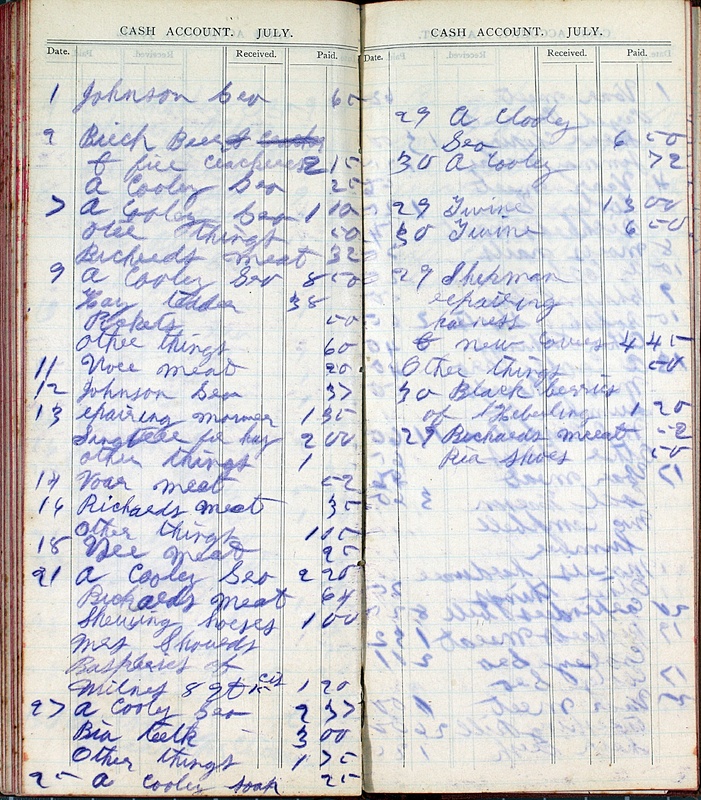 CASH ACCOUNT. JULY.
Date. Received. Paid.
1 Johnson Seo 60
9 Birch Beer
& fice crackers 2 15
A Cooley Seo 25
7 A Cooley Seo 1 10
Othe things 50
Richerds meat 32
9 A Cooley Seo 8 50
Hay 38
50
Other things 60
11 meat 20
12 Johnson Seo 37
13 epairing 1 35
for hay 2 00
other things 1
14 meat 52
14 Richards meat 35
Other things 1 15
18 meat 25
21 A Cooley Seo 2 20
Richards meat 64
Shewing horses 1 00
Mrs
of
Milney 8 qt 1 20
27 A Cooley Seo 2 37
Ria 3 00
Other things 1 75
25 A Cooley soak 25
CASH ACCOUNT. JULY.
Date. Received. Paid.
29 A Clooley
Seo 6 50
30 A Cooley 72
29 Twine 13 00
30 Twine 6 50
29 Shepman
epairing
harness
& new covers 4 45
Other things 50
30 Black berris
of Heberling 1 20
29 Richards meeat 52
Ria shoes 50